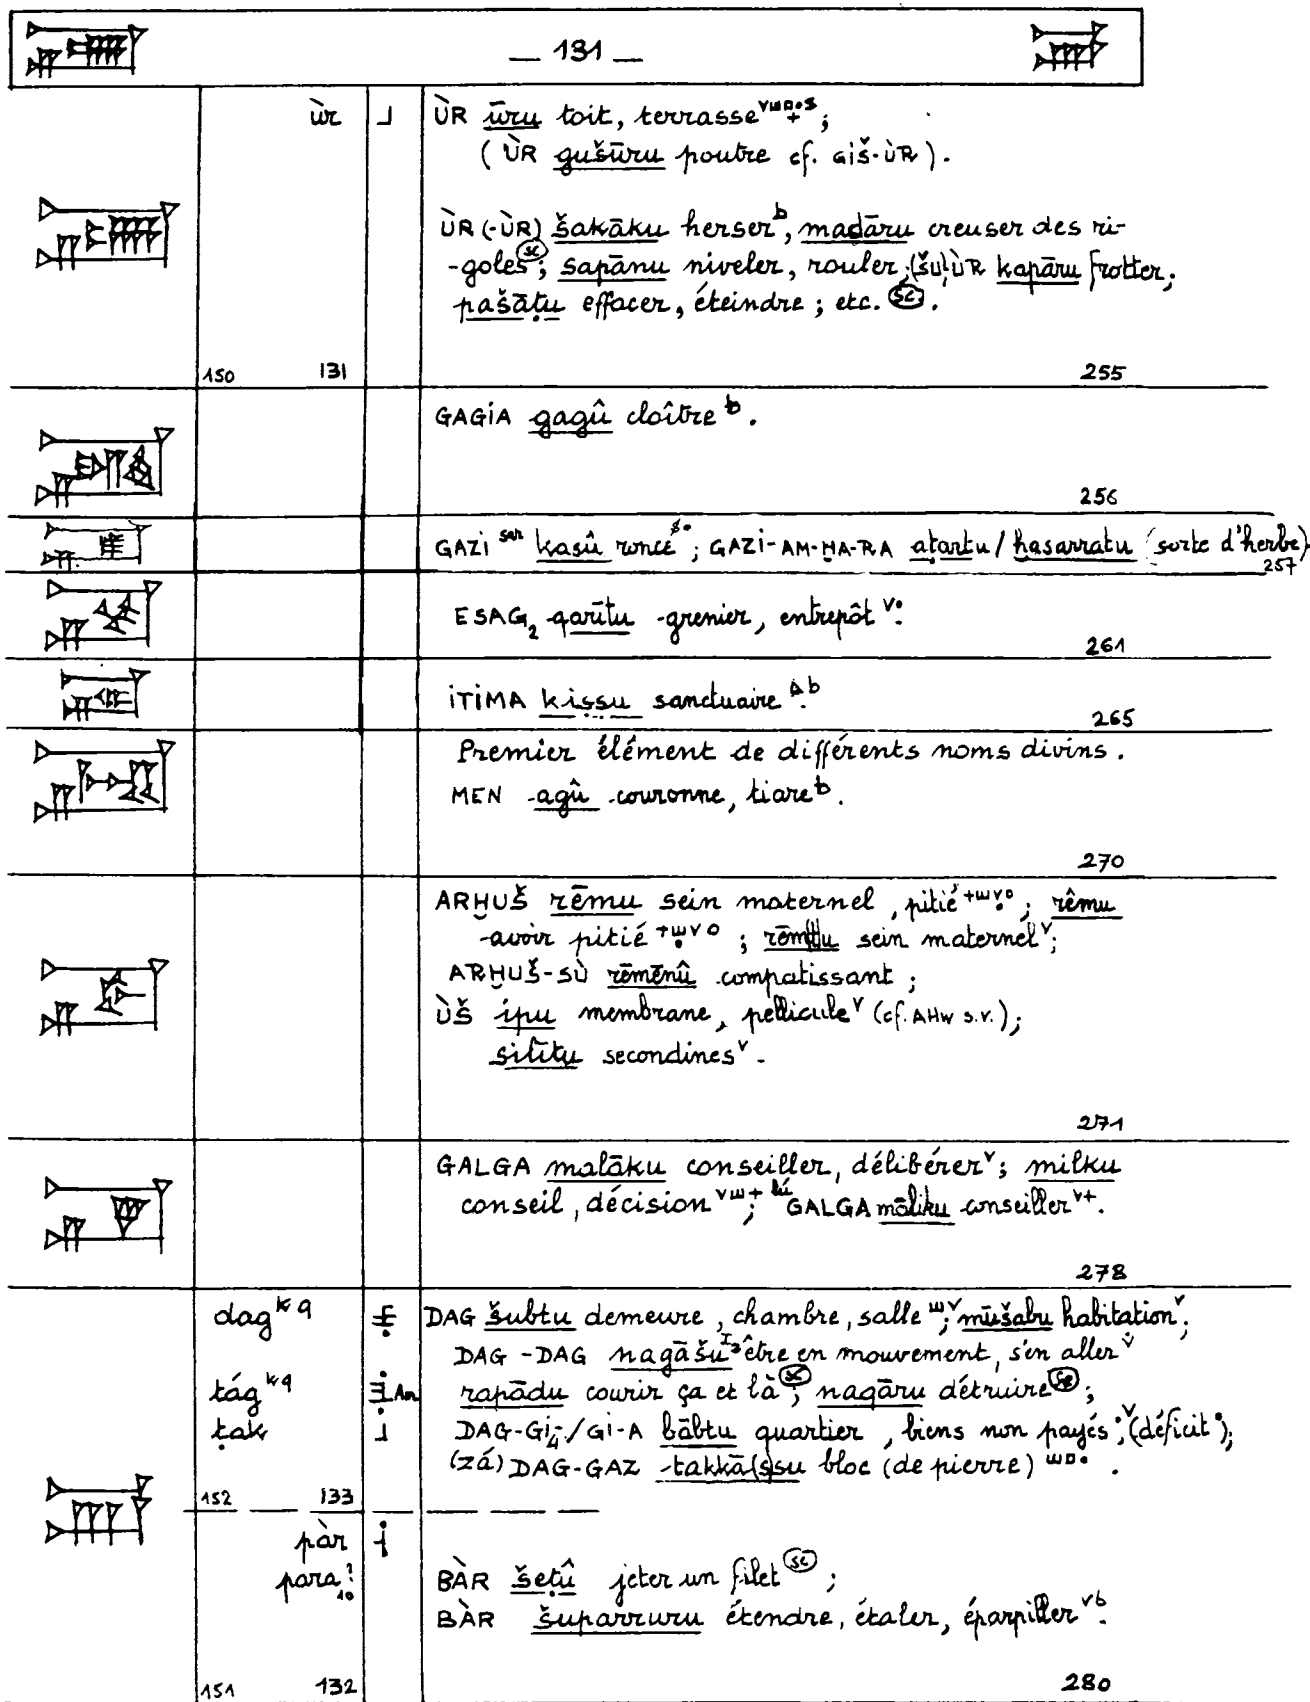 — 131 —
ùr ÙR ūru toit, terrasse ;
( ÙR gušūru poutre cf. GIŠ-ÙR ).
ÙR (-ÙR) šakāku herser b, madāru creuser des ri-
goles sc ; sapānu niveler, rouler ; (šu) ÙR kapāru frotter ;
pašāṭu effacer, éteindre ; etc. sc .
150 131 255
GAGIA gagû cloître b .
256
GAZI sar kasû ronce ; GAZI-AM-ḪA-RA aṭarṭu / ḫasarratu (sorte d'herbe)
257
ESAG₂ qarītu grenier, entrepôt v.
261
ITIMA kiṣṣu sanctuaire b.
265
Premier élément de différents noms divins .
MEN agû couronne, tiare b .
270
ARḪUŠ rēmu sein maternel, pitié ; rêmu
avoir pitié ; sein maternel v ;
ARḪUŠ-SÙ rēmēnû compatissant ;
ÙŠ ipu membrane, pellicule v (cf. AHw s.v.) ;
silītu secondines v .
271
GALGA malāku conseiller, délibérer v ; milku
conseil, décision ; lú GALGA māliku conseiller v+ .
278
dag k q DAG šubtu demeure, chambre, salle ; mūšabu habitation v ;
DAG-DAG nagāšu I₃ être en mouvement, s'en aller v
tág k q rapādu courir ça et là sc ; naqāru détruire sc ;
ṭak DAG-GI₄-/GI-A bābtu quartier, biens non payés ; (déficit) ;
(zá) DAG-GAZ takkassu bloc (de pierre) .
152 133
pàr
para₁₀? BÀR šeṭû jeter un filet sc ;
BÀR šuparruru étendre, étaler, éparpiller vb .
151 132 280